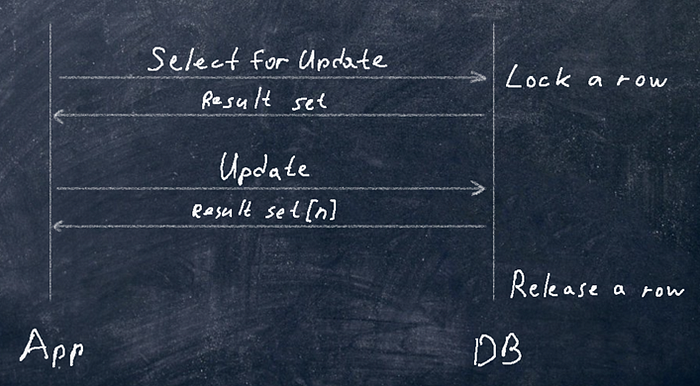 Select for Update
Lock a row
Result set
Update
Result set[n]
Release a row
App
DB